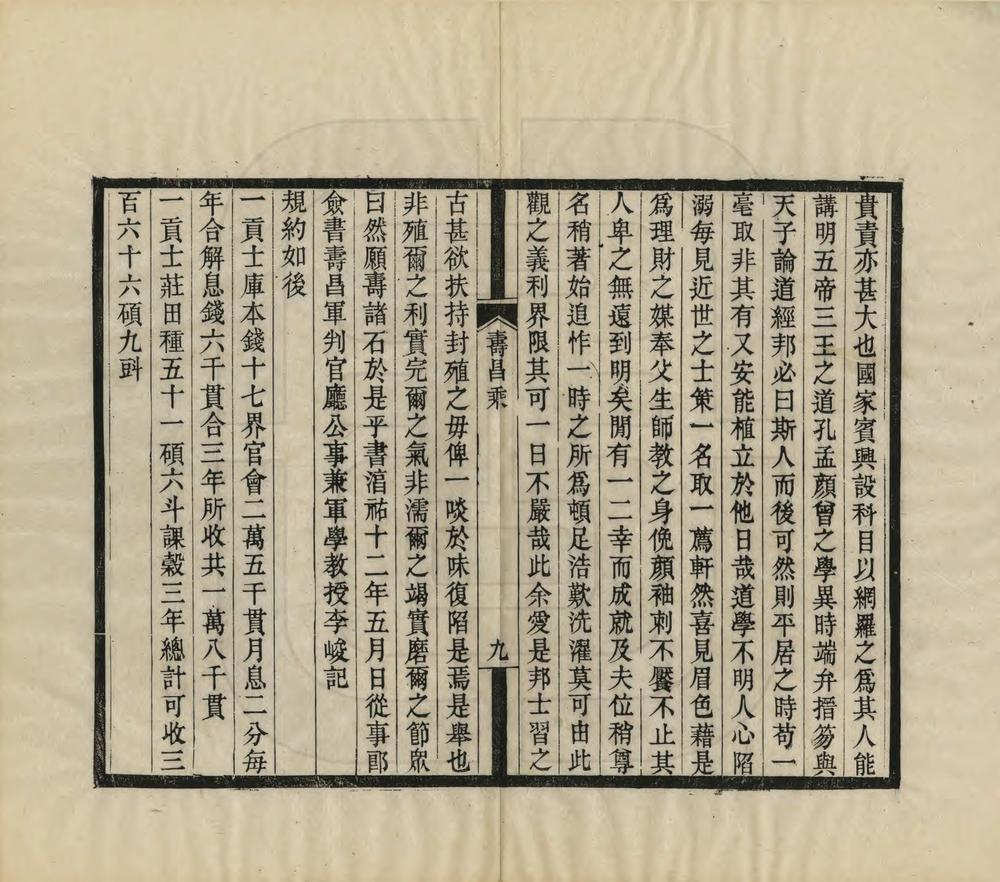 貴責亦甚大也國家賓興設科目以網羅之爲其人能
講明五帝三王之道孔孟顏曾之學異時端弁搢笏與
天子論道經邦必曰斯人而後可然則平居之時苟一
毫取非其有又安能植立於他日哉道學不明人心陷
溺每見近世之士策一名取一薦軒然喜見眉色藉是
爲理財之媒奉父生師教之身俛顏袖刺不饜不止其
人卑之無遠到明矣閒有一二幸而成就及夫位稍尊
名稍著始追怍一時之所爲頓足浩歎洗濯莫可由此
觀之義利界限其可一日不嚴哉此余愛是邦士習之
壽昌乘
九
古甚欲扶持封殖之毋俾一啖於味復陷是焉是舉也
非殖爾之利實完爾之氣非濡爾之竭實磨爾之節眾
曰然願壽諸石於是乎書㵑祐十二年五月日從事郎
僉書壽昌軍判官廳公事兼軍學教授李峻記
規約如後
一貢士庫本錢十七界官會二萬五千貫月息二分每
年合解息錢六千貫合三年所收共一萬八千貫
一貢士莊田種五十一碩六斗課穀三年總計可收三
百六十六碩九㪷